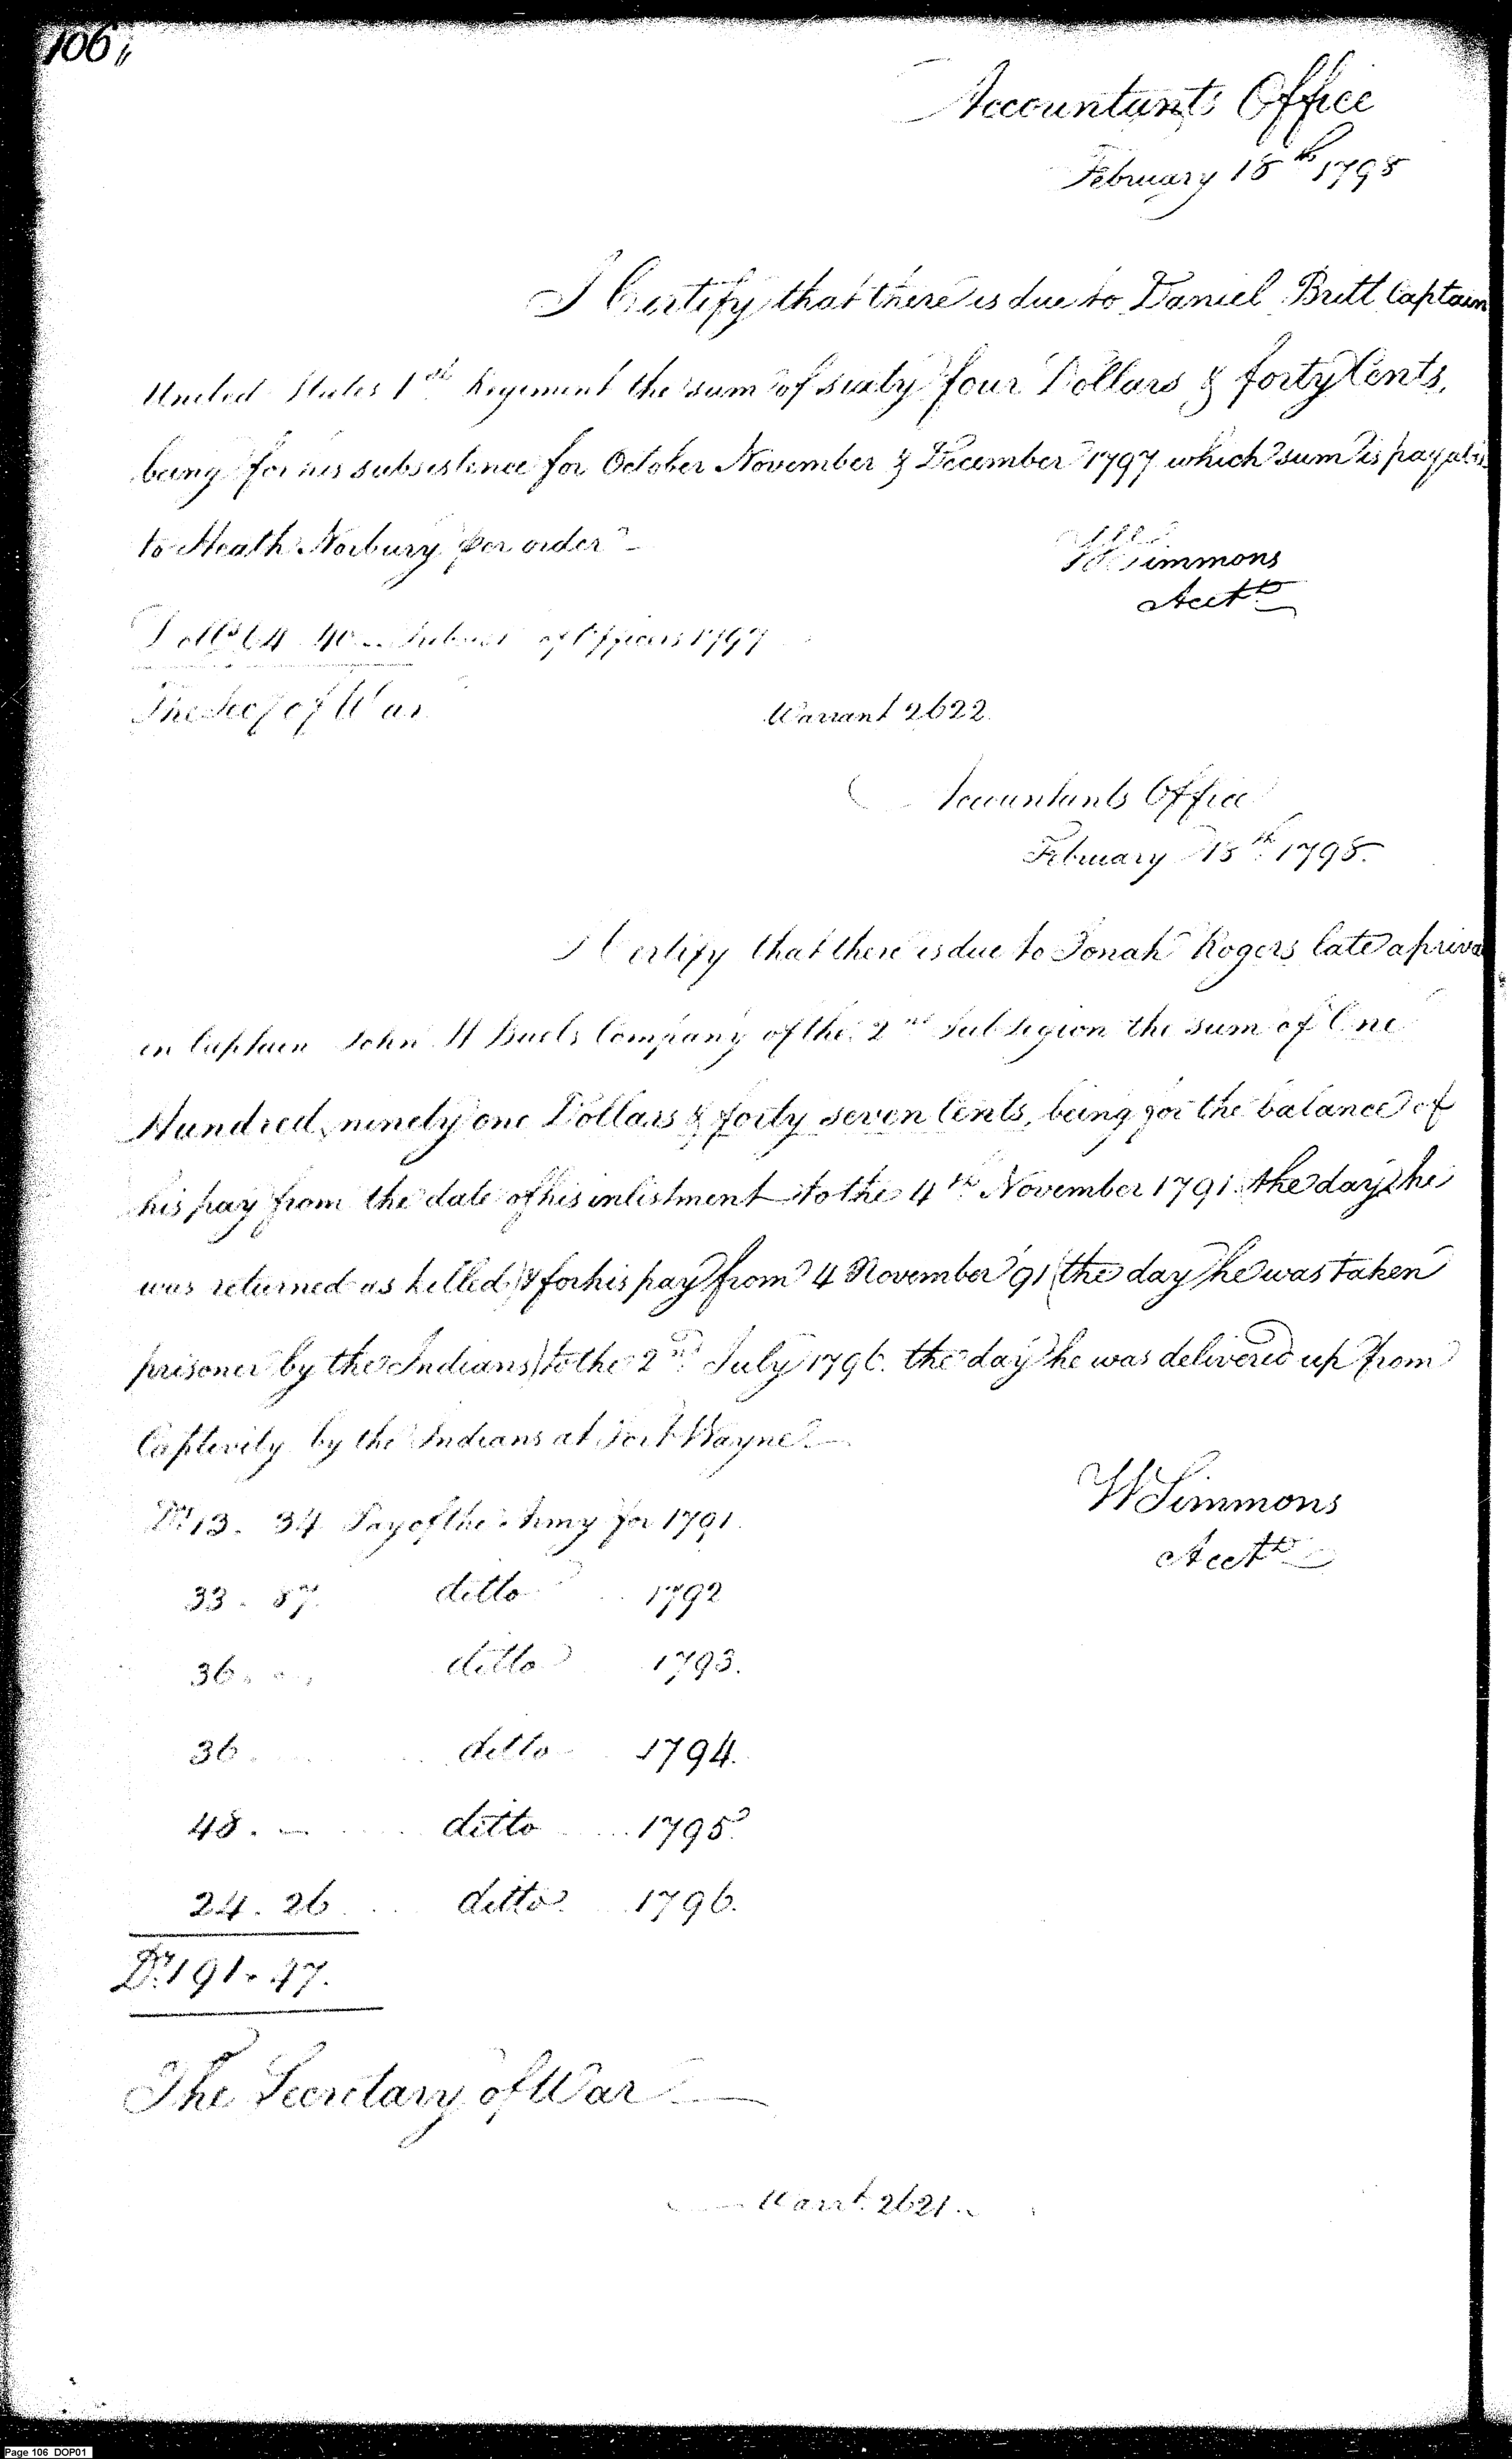 106
Accountants Office
February 18th 1798
I Certify that there is due to Daniel Britt Captain
United States 1st Regiment the sum of sixty four Dollars & forty Cents,
being for his subsistence for October November & December 1797 which sum is payable
to Heath Norbury per order
W Simmons
Acctt
Dolls 64 40 Subsist of Officers 1797
The Secy of War
Warrant 2622.
Accountants Office
February 18th 1798.
I Certify that there is due to Jonah Rogers late a priva
in Captain John H Buels Company of the 2nd Sub Legion the sum of One
Hundred ninety one Dollars & forty seven Cents, being for the balance of
his pay from the date of his inlistment to the 4th November 1791 the day he
was returned as killed, & for his pay from 4 November 91 (the day he was taken
prisoner by the Indians) to the 2nd July 1796. the day he was delivered up from
Captivity by the Indians at Fort Wayne
Drs 13. 34 Pay of the Army for 1791.
W Simmons
Acctt
33. 87. ditto 1792
36. ditto 1793.
36. ditto 1794.
48. — ditto 1795.
24. 26 ditto 1796.
Drs 191. 47.
The Secretary of War
Warrt. 2621.
Page 106 DOP01